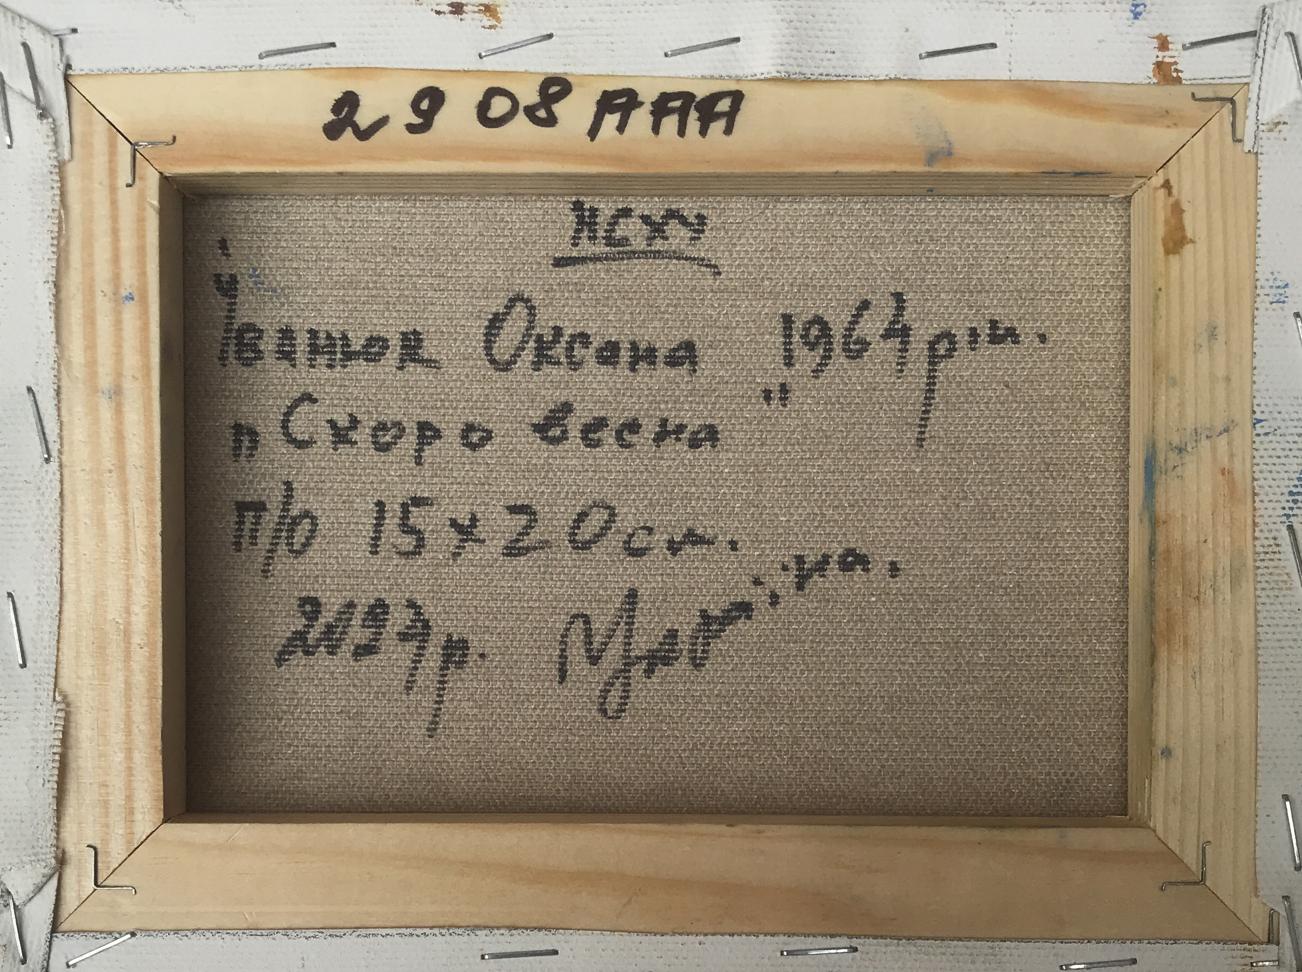 2908 AAA
НСХУ
Іванюк Оксана 1964 р.н.
„Скоро весна"
п/о 15х20см.
р. Україна.